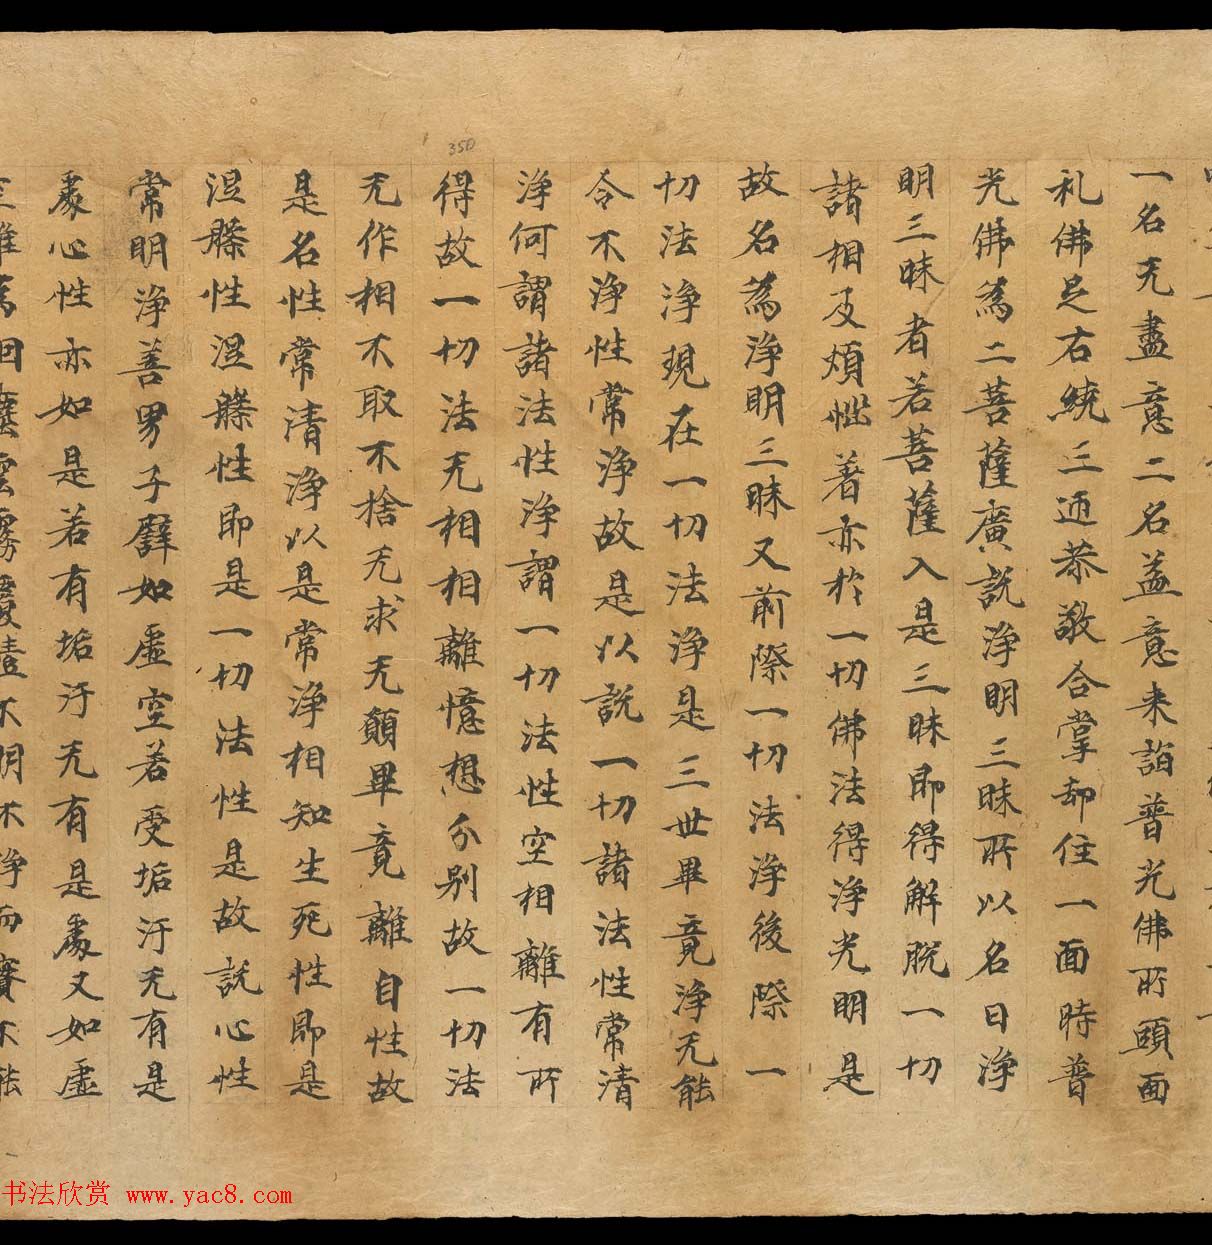 一名无盡意二名益意来詣普光佛所頭面
礼佛足右繞三迊恭敬合掌却住一面時普
光佛為二菩薩廣說淨明三昧所以名曰淨
明三昧者若菩薩入是三昧即得解脫一切
諸相及煩惱著亦於一切佛法得淨光明是
故名為淨明三昧又前際一切法淨後際一
切法淨現在一切法淨是三世畢竟淨无能
令不淨性常淨故是以說一切諸法性常清
淨何謂諸法性淨謂一切法性空相離有所
得故一切法无相相離憶想分別故一切法
无作相不取不捨无求无願畢竟離自性故
是名性常清淨以是常淨相知生死性即是
涅槃性涅槃性即是一切法性是故說心性
常明淨善男子譬如虛空若受垢汙无有是
處心性亦如是若有垢汙无有是處又如虛
空雖為烟塵雲霧覆曀不明不淨而實不能
350
书法欣赏 www.yac8.com